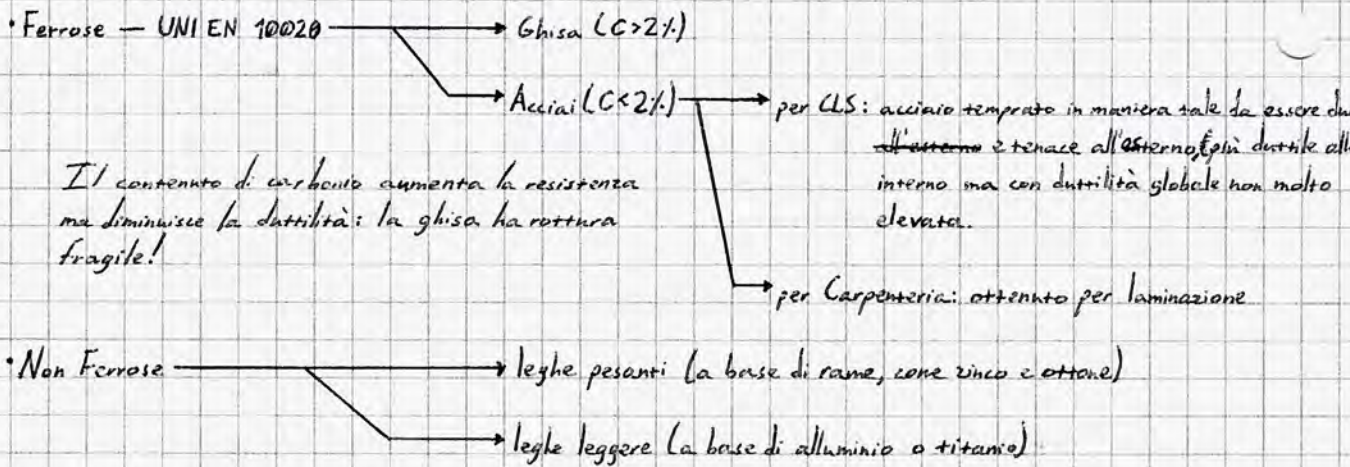 • Ferrose — UNI EN 10020
Ghisa (C>2%)
Acciai (C<2%)
per CLS: acciaio temprato in maniera tale da essere du
all'esterno e tenace all'esterno, è più duttile all
interno ma con duttilità globale non molto
elevata.
Il contenuto di carbonio aumenta la resistenza
ma diminuisce la duttilità: la ghisa ha rottura
fragile!
per Carpenteria: ottenuto per laminazione
• Non Ferrose
leghe pesanti (a base di rame, come zinco e ottone)
leghe leggere (a base di alluminio o titanio)